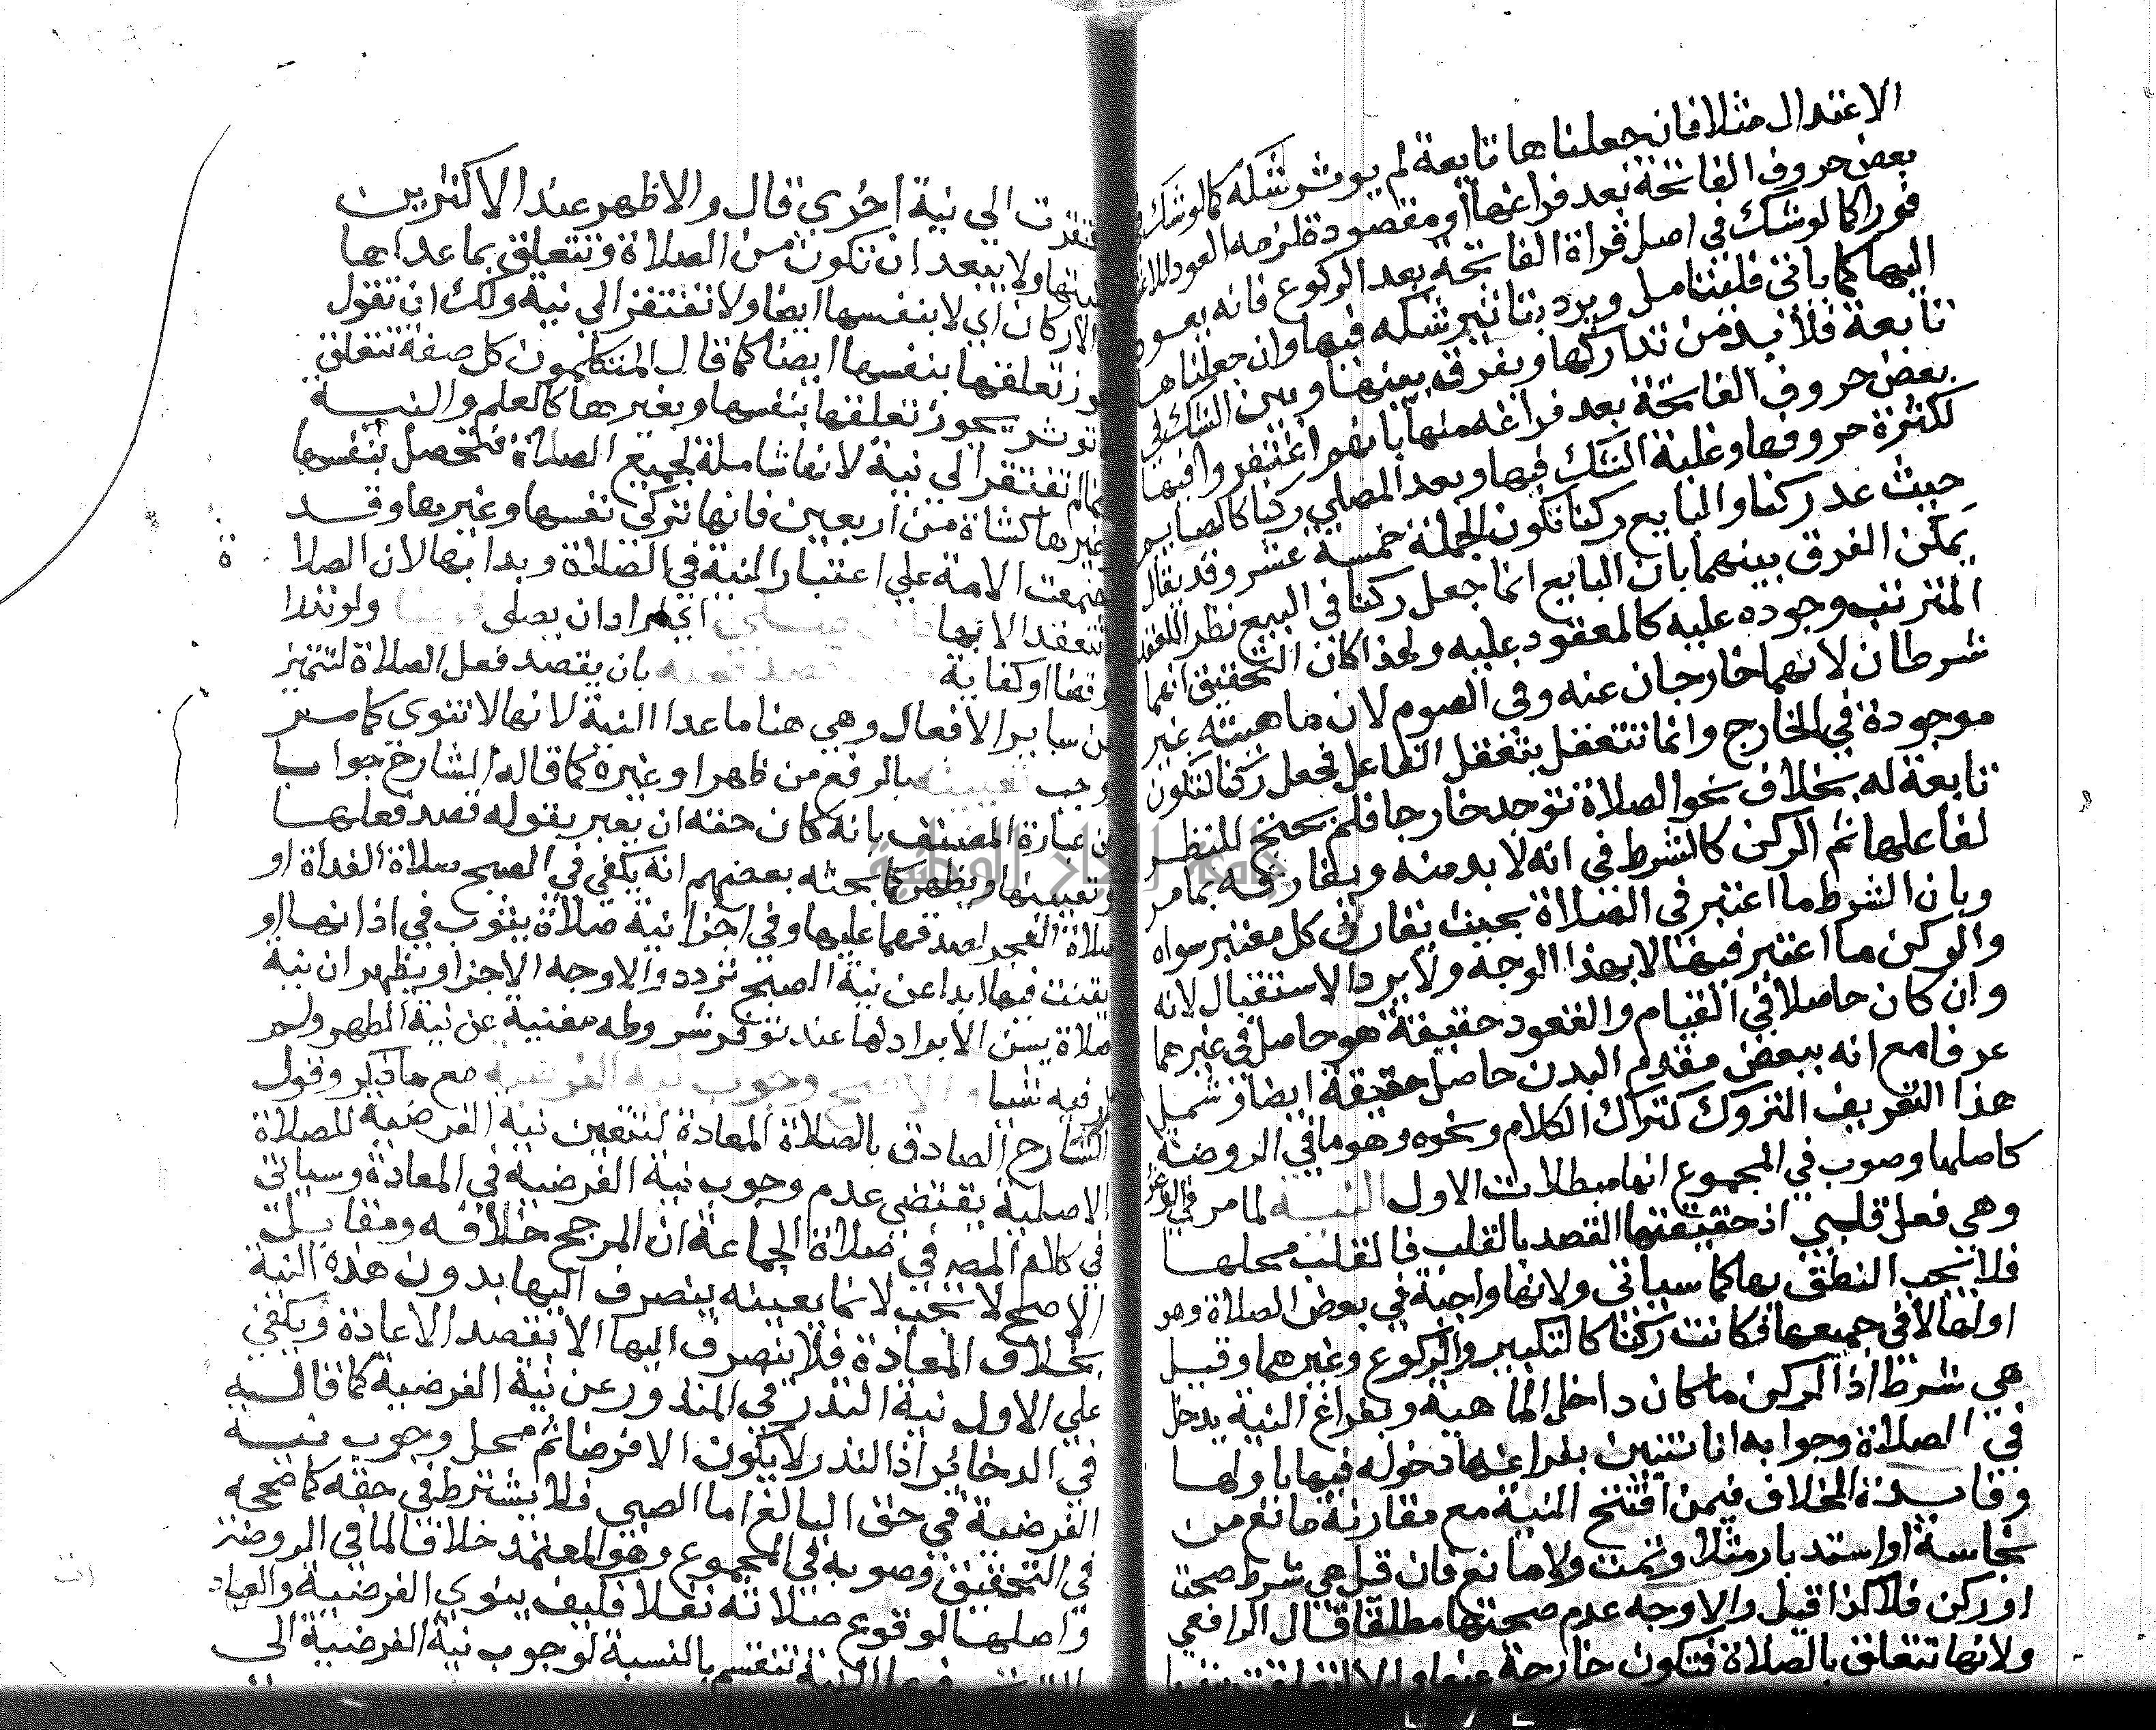 الاعتدال مثلا فان جعلناها تابعة لم يوثر شكه كما لو شك في
بعض حروف الفاتحة بعد فراغها او مقصودة لزمه العود للاعتدال
فورا كما لو شك في اصل قراة الفاتحة بعد الركوع فانه يعود
اليها كما ياتي فليتامل ويرد بتاثير شكه فيها وان جعلناها
تابعة فلا بد من تداركها ويفرق بينها وبين الشك في
بعض حروف الفاتحة بعد فراغه منها بانهم اغتفروا فيها
لكثرة حروفها وغلبة الشك فيها وبعد المصلي ركنا كالصايم
حيث عد ركنا والبايع ركنا تكون الجملة خمسة عشر وقد يقال
يمكن الفرق بينهما بان البايع انما جعل ركنا في البيع نظرا للعقد
المترتب وجوده عليه كالمعقود عليه ولهذا كان التحقيق انهما
شرطان لانهما خارجان عنه وفي الصوم لان ماهيته غير
موجودة في الخارج وانما تتعقل بتعقل الفاعل فجعل ركنا لتكون
تابعة له بخلاف نحو الصلاة توجد خارجا فلم يحتج للنظر
لفاعلها ثم الركن كالشرط في انه لا بد منه ويفارقه بما مر
وبان الشرط ما اعتبر في الصلاة بحيث يقارن كل معتبر سواه
والركن ما اعتبر فيها لا بهذا الوجه ولا يرد الاستقبال لانه
وان كان حاصلا في القيام والقعود حقيقة هو حاصل في غيرهما
عرفا مع انه ببعض مقدم البدن حاصل حقيقة ايضا وشمل
هذا التعريف التروك كترك الكلام ونحوه وهو ما في الروضة
كاصلها وصوب في المجموع انها مبطلات الاول النية لما مر في الوضوء
وهي فعل قلبي اذ حقيقتها القصد بالقلب فالقلب محلها
فلا يجب النطق بها كما سياتي ولانها واجبة في بعض الصلاة وهو
اولها لا في جميعها فكانت ركنا كالتكبير والركوع وغيرهما وقيل
هي شرط اذ الركن ما كان داخل الماهية وبفراغ النية يدخل
في الصلاة وجوابه انا نتبين بفراغها دخوله فيها باولها
وفايدة الخلاف فيمن افتتح النية مع مقارنة مانع من
نجاسة او استدبار مثلا وتمت ولا مانع فان قيل هي شرط صحت
او ركن فلا كذا قيل والاوجه عدم صحتها مطلقا قال الرافعي
ولانها تتعلق بالصلاة فتكون خارجة عنها والا لتعلقت بنفسها
فتقرت الى نية اخرى قال والاظهر عند الاكثرين
ركنيتها ولا يبعد ان تكون من الصلاة وتتعلق بما عداها
من الاركان اي لا بنفسها ايضا ولا تفتقر الى نية ولك ان تقول
يجوز تعلقها بنفسها ايضا كما قال المتكلمون كل صفة تتعلق
ولا توثر يجوز تعلقها بنفسها وبغيرها كالعلم والنية
وانما لم تفتقر الى نية لانها شاملة لجميع الصلاة فتحصل نفسها
وغيرها كشاة من اربعين فانها تزكي نفسها وغيرها وقد
اجمعت الامة علي اعتبار النية في الصلاة وبدا بها لان الصلاة
لا تنعقد الا بها اي اراد ان يصلى ولو نذرا
وقضا او كفاية بان يقصد فعل الصلاة لتتميز
من ساير الافعال وهي هنا ما عدا النية لانها لا تنوى كما مر
وجب تعيينه بالرفع من ظهر او غيره كما قاله الشارح جوابا
عن عبارة المصنف بانه كان حقه ان يعبر بقوله قصد فعلها
وتعيينها ويظهر كما بحثه بعضهم انه يكفي في الصبح صلاة الغداة او
صلاة الفجر لصدقهما عليها وفي اجزا نية صلاة يثوب في اذانها او
يقنت فيها ابدا عن نية الصبح تردد والاوجه الاجزا ويظهر ان نية
صلاة يسن الابراد لها عند توفر شروطه مغنية عن نية الظهر ولم
ار فيه شيا والاصح وجوب نية الفرضية مع ما ذكر وقول
الشارح الصادق بالصلاة المعادة لتتعين نية الفرضية للصلاة
الاصلية يقتضي عدم وجوب نية الفرضية في المعادة وسياتي
في كلام المصه في صلاة الجماعة ان المرجح خلافه ومقابل
الاصح لا تجب لان ما يعينه ينصرف اليها بدون هذه النية
بخلاف المعادة فلا ينصرف اليها الا بقصد الاعادة ويكفي
على الاول نية النذر في المنذور عن نية الفرضية كما قاله
في الدخائر اذ النذر لا يكون الا فرضا ثم محل وجوب نية
الفرضية في حق البالغ اما الصبي فلا يشترط في حقه كما صححه
في التحقيق وصوبه في المجموع وهو المعتمد خلافا لما في الروضة
واصلها لوقوع صلاته نفلا فكيف ينوى الفرضية والعبادات
تنقسم بالنسبة لوجوب نية الفرضية الى